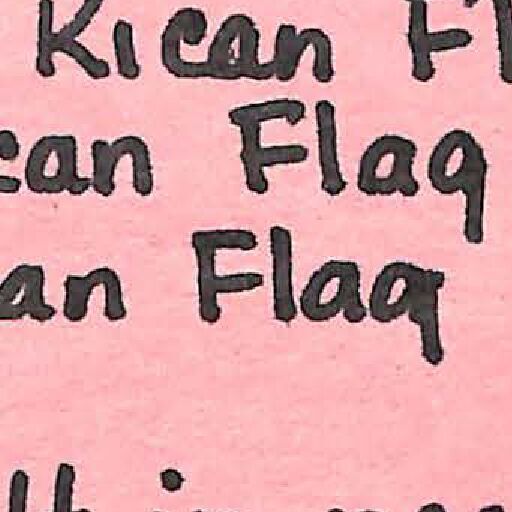 Rican Fl
can Flag
an Flag